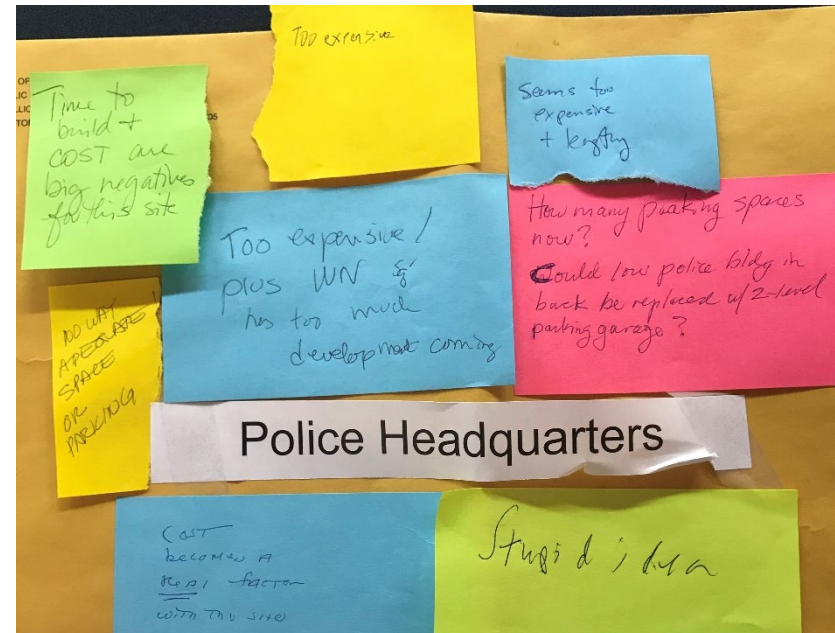 Too expensive
OF
IC
LIC
TOR
05
Time to
build +
COST are
big negatives
for this site
Seems too
expensive
+ lengthy
Too expensive!
plus WN sq
has too much
development coming
How many parking spaces
now?
Could low police bldg in
back be replaced w/ 2-level
parking garage?
NO WAY
ADEQUATE
SPACE
OR
PARKING
Police Headquarters
COST
becomes A
REAL factor
with this site
Stupid idea